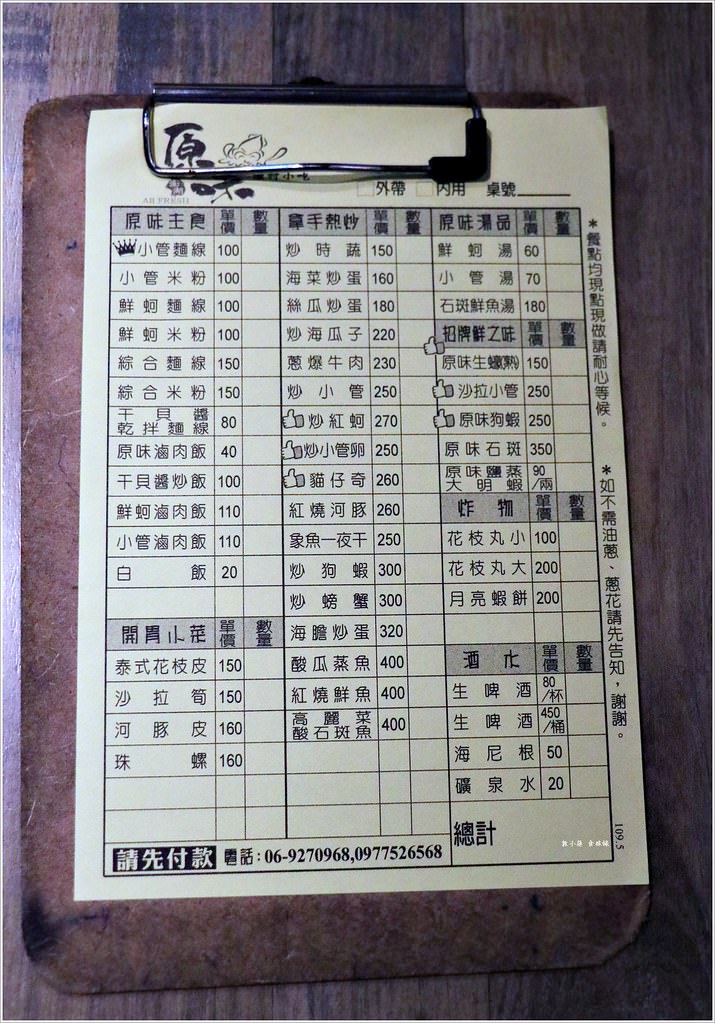 原味
ALL FRESH
外帶 內用 桌號
原味主食 單價 數量
小管麵線 100
小管米粉 100
鮮蚵麵線 100
鮮蚵米粉 100
綜合麵線 150
綜合米粉 150
干貝醬乾拌麵線 80
原味滷肉飯 40
干貝醬炒飯 100
鮮蚵滷肉飯 110
小管滷肉飯 110
白飯 20
開胃小菜 單價 數量
泰式花枝皮 150
沙拉筍 150
河豚皮 160
珠螺 160
拿手熱炒 單價 數量
炒時蔬 150
海菜炒蛋 160
絲瓜炒蛋 180
炒海瓜子 220
蔥爆牛肉 230
炒小管 250
炒紅蚵 270
炒小管卵 250
貓仔奇 260
紅燒河豚 260
象魚一夜干 250
炒狗蝦 300
炒螃蟹 300
海膽炒蛋 320
酸瓜蒸魚 400
紅燒鮮魚 400
高麗菜酸石斑魚 400
原味湯品 單價 數量
鮮蚵湯 60
小管湯 70
石斑鮮魚湯 180
招牌鮮之味 單價 數量
原味生蠔(熟) 150
沙拉小管 250
原味狗蝦 250
原味石斑 350
原味鹽蒸大明蝦 90/兩
炸物 單價 數量
花枝丸小 100
花枝丸大 200
月亮蝦餅 200
酒水 單價 數量
生啤酒 80/杯
生啤酒 450/桶
海尼根 50
礦泉水 20
總計
請先付款 電話:06-9270968,0977526568
*餐點均現點現做請耐心等候。
*如不需油蔥、蔥花請先告知,謝謝。
109.5